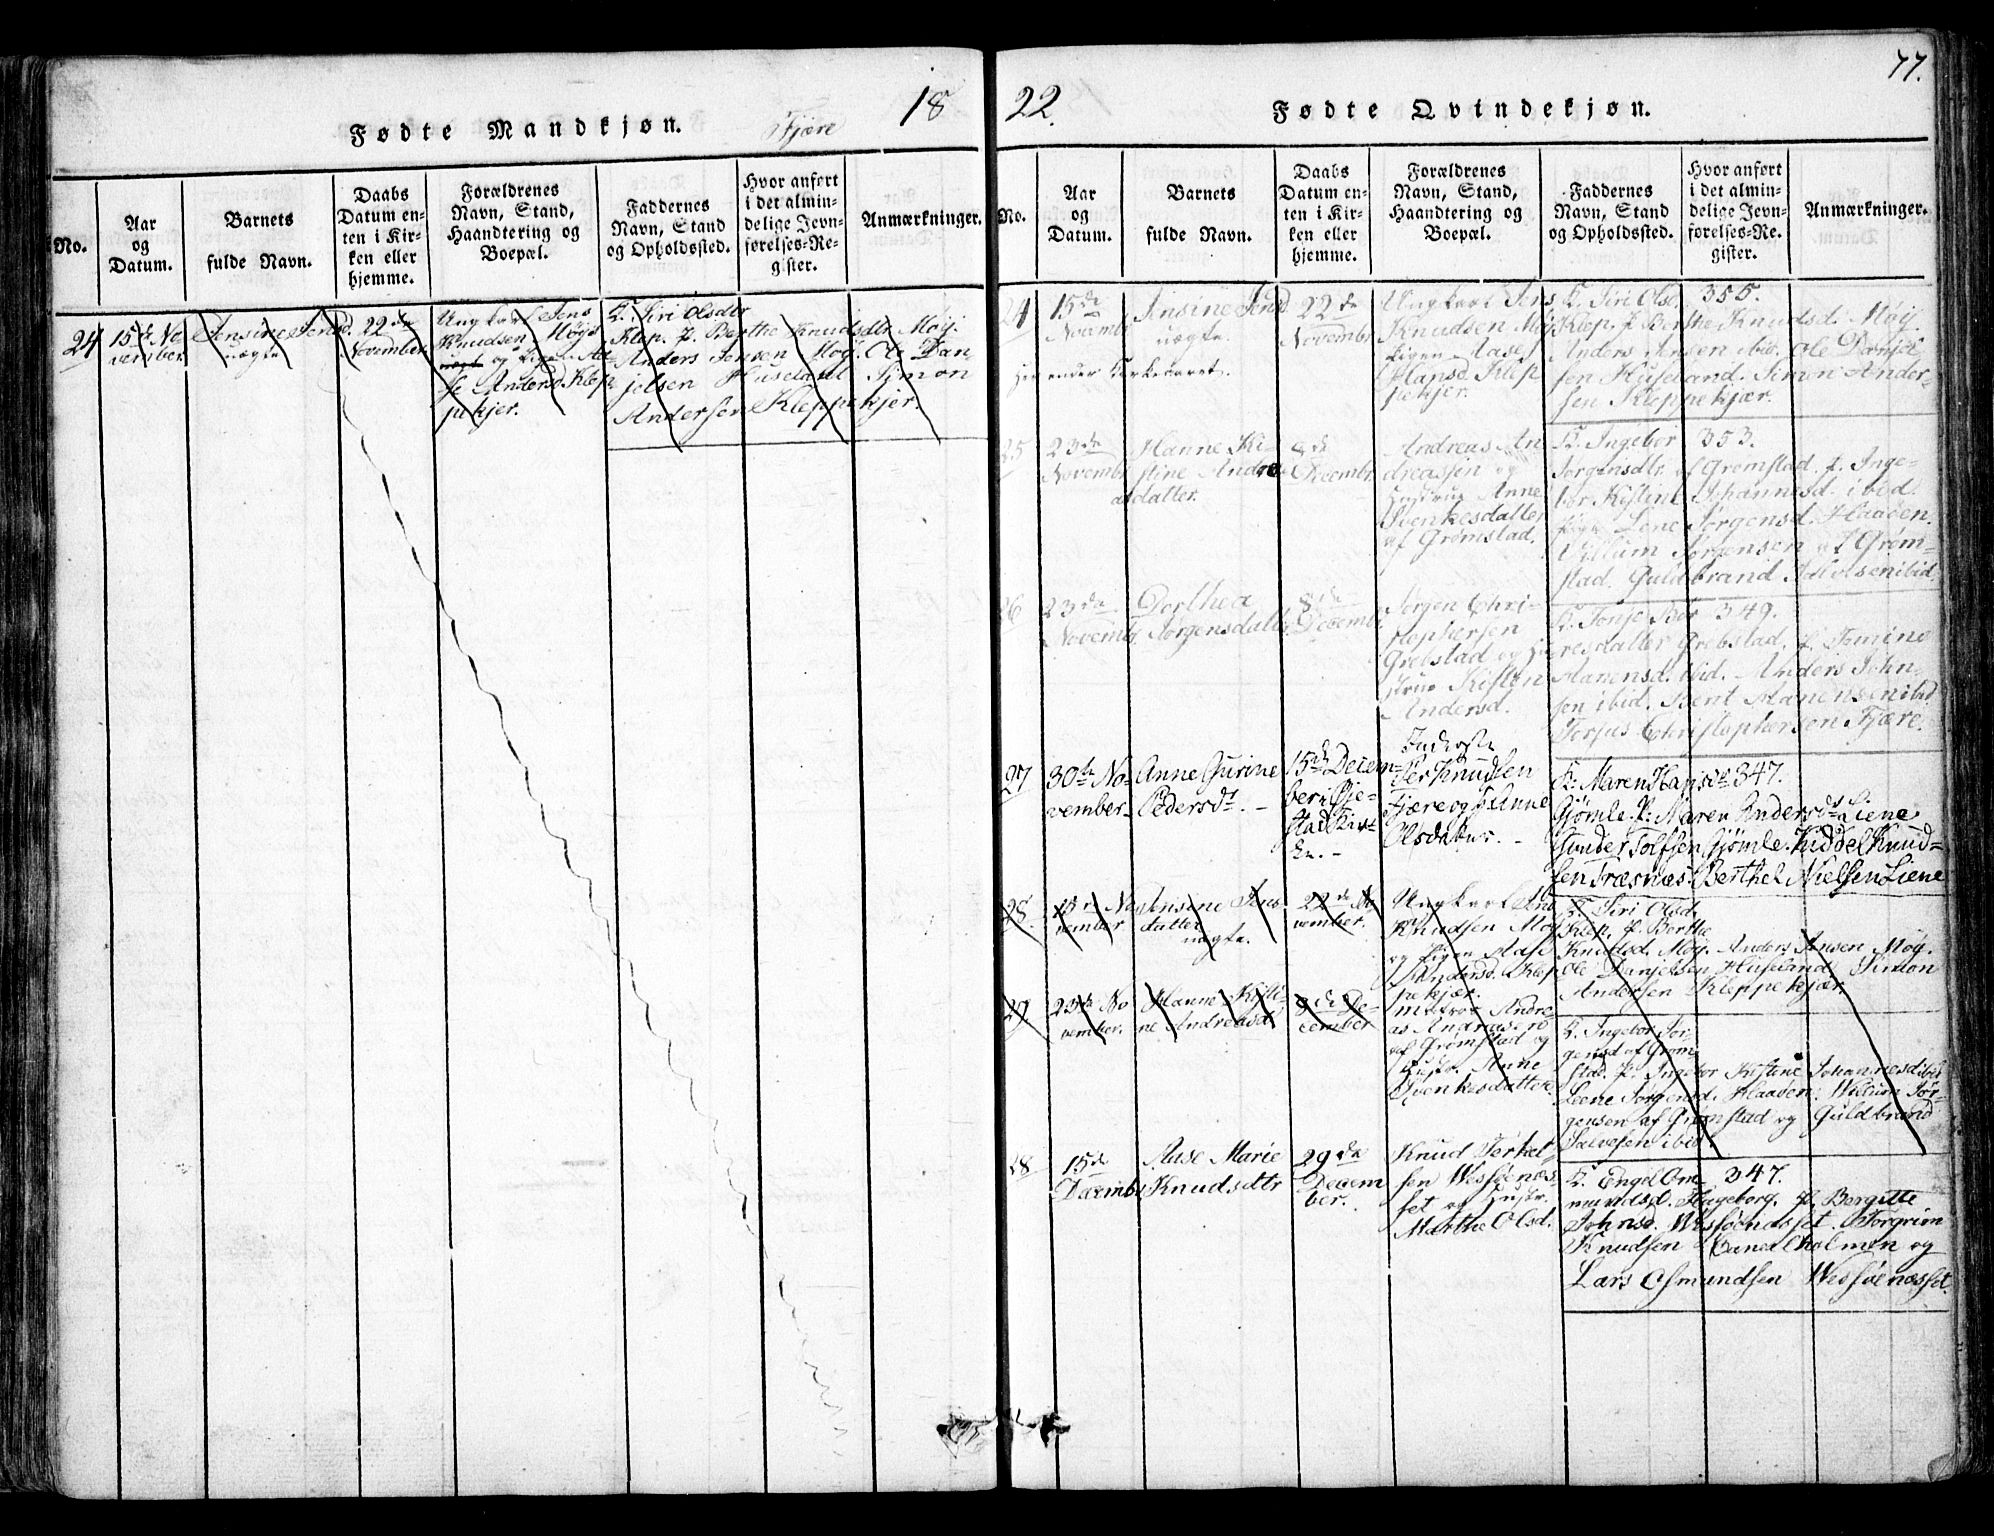 77.
18
22.
Fødte Mandkjøn.
Fjære
No.
Aar
og
Datum.
Barnets
fulde Navn.
Daabs
Datum en-
ten i Kir-
ken eller
hjemme.
Forældrenes
Navn, Stand,
Haandtering og
Boepæl.
Faddernes
Navn, Stand
og Opholdssted.
Hvor anført
i det almin-
delige Jevn-
førelses-Re-
gister.
Anmærkninger.
24
15de No
vember
Jensine Jensd.
uægte
22de
November
Ungkarl Jens
Knudsen Møys
og Pigen Aa-
se Andersd Klep
pekjer.
K. Siri Olsdtr
Klep. P. Berthe Knudsdtr Møy.
Anders Jensen Møy. Ole Dan
jelsen Huseland Simon
Andersen Kleppekjer.
Fødte Qvindekjøn.
No.
Aar
og
Datum.
Barnets
fulde Navn.
Daabs
Datum en-
ten i Kir-
ken eller
hjemme.
Forældrenes
Navn, Stand,
Haandtering og
Boepæl.
Faddernes
Navn, Stand
og Opholdssted.
Hvor anført
i det almin-
delige Jevn-
førelses-Re-
gister.
Anmærkninger.
24
15de
Novembr
Jensine Jensd
uægte.
22de
Novembr
Ungkarl Jens
Knudsen Møy
Pigen Aase
Hansd Klep
pekjer.
Her ender Kirkeaaret.
K. Siri Olsd. 355.
Klep. P. Berthe Knudsd. Møy.
Anders Jensen ibid. Ole Danjel
sen Huseland. Simon Ander-
sen Kleppekjær.
25
23de
Novembr
Hanne Ki-
stine Andre
asdatter.
8de
Decembr.
Andreas An
dreassen og
Hustrue Anne
Svenkesdatter
af Grømstad.
K. Ingebor 353.
Jørgensdtr. af Grømstad. P. Inge-
bor Kistine Johannesd. ibid.
Lene Jørgensd. Haaven.
Villum Jørgensen af Grøm-
stad. Guldbrand Salvesen ibid.
26
23de
Novembr
Dorthea
Jørgensdatter
8de
Decembr.
Jørgen Chri-
stophersen
Grebstad og Hu
strue Kisten
Andersd.
K. Tonje Bør 349.
resdatter Grebstad. P. Tomine
Manensd. ibid. Anders John-
sen ibid. Bent Manensen ibid
Torjus Christophersen Fjære.
27
30te No-
vember.
Anne Gurine
Pedersdt. –
15de Decem-
ber i Øje-
stad Kir-
ke. –
Inderste
Per Knudsen
Fjære og H. Anne
Olsdatter. –
K: Maren Hansdt 347.
Gjømle. P: Maren Andersdt Liene
Gunder Tolfsen Gjømle. Kiddel Knud-
sen Træsnæs. Berthel Nielsen Liene
28.
15de No
vember
Jensine Jens
datter
uægte.
22de No
vember.
Ungkarl Jens
Knudsen Møy
og Pigen Aase
Andersd. Klep
pekjær.
K. Siri Olsd.
Klep. P. Berthe
Knudsd. Møy. Anders Jensen Møy.
Ole Danjelsen Huseland, Simon
Andersen Kleppekjær.
29.
23de No
vember.
Hanne Kisti-
ne Andreasd
8de De-
cember
Andre-
as Andreasen
af Grømstad og
Hustr. Anne
Svenkesdatter
K. Ingebor Jør-
gensd af Grøm-
stad. P. Ingebor Kistine Johannesd ibid
Leene Jørgensd. Haaven. Willum Jør-
gensen af Grømstad og Guldbrand
Salvesen ibid.
28
15de
Decembr
Aase Marie
Knudsdtr
29de
Decem
ber.
Knud Terkel
sen Wessøenæs
set og Hustr.
Marthe Olsd.
K. Engel Om 347.
mundsd. Hageborg. P. Bergitte
Johnsd. Wessøenæsset. Torgrim
Knudsen og
Lars Osmundsen Wessøenæsset.